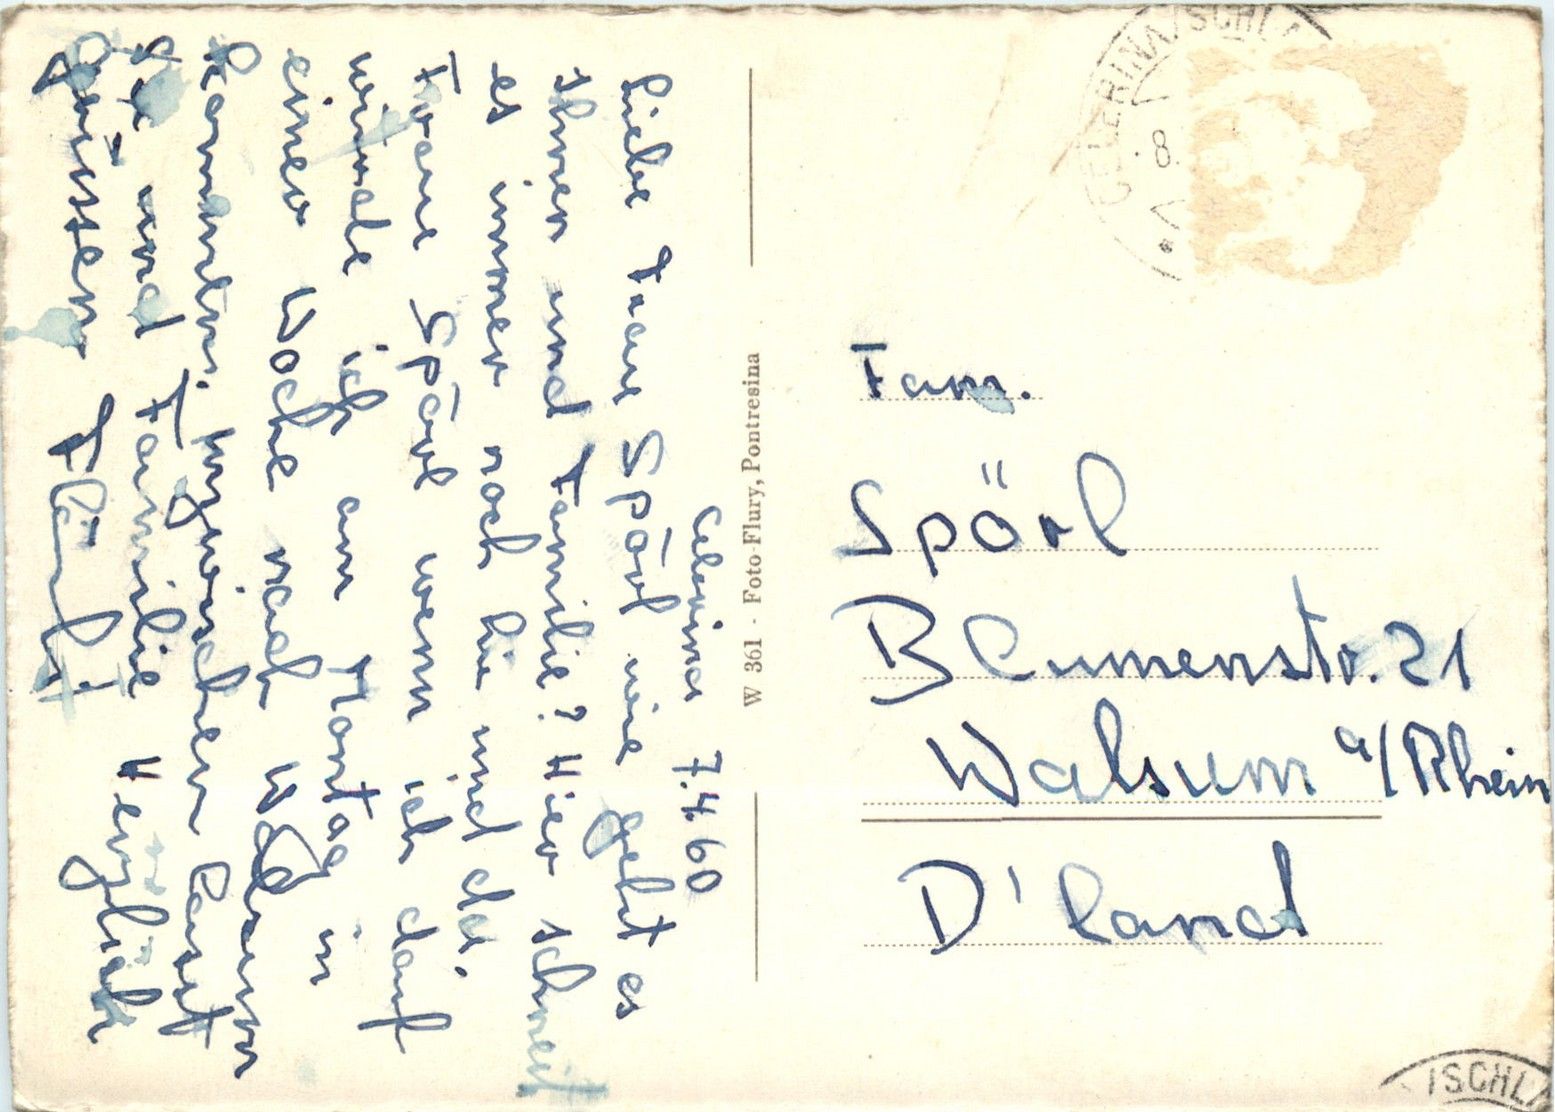 Celerina 7.4.60
Liebe Frau Spörl wie geht es
Ihnen und Familie? Hier schneit
es immer noch hie und da.
Frau Spörl wenn ich darf
würde ich am Montag in
einer Woche nach Walsum
kommen. Inzwischen lasst
Sie und Familie Herzlich
Grüssen
W 361 - Foto-Flury, Pontresina
CELERINA/SCHLA
8.
Fam.
Spörl
Blumenstr. 21
Walsum a/Rhein
D'land
/SCHLA